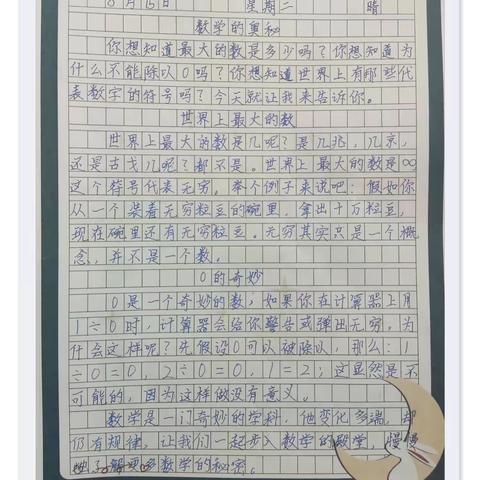 8月15日 星期二 晴
数学的奥秘
你想知道最大的数是多少吗？你想知道为
什么不能除以0吗？你想知道世界上有那些代
表数字的符号吗？今天就让我来告诉你。
世界上最大的数
世界上最大的数是几呢？是几兆，几京，
还是古戈儿呢？都不是。世界上最大的数是∞
这个符号代表无穷。举个例子来说吧：假如你
从一个装着无穷粒豆的碗里，拿出十万粒豆，
现在碗里还有无穷粒豆。无穷其实只是一个概
念，并不是一个数。
0的奇妙
0是一个奇妙的数，如果你在计算器上用
1÷0时，计算器会给你警告或弹出无穷。为
什会这样呢？先假设0可以被除以，那么：1
÷0=0，2÷0=0，1=2；这显然是不
可能的，因为这样做没有意义。
数学是一门奇妙的学科，他变化多端，却
仍有规律，让我们一起步入数学的殿堂，慢慢
地了解更多数学的秘密。